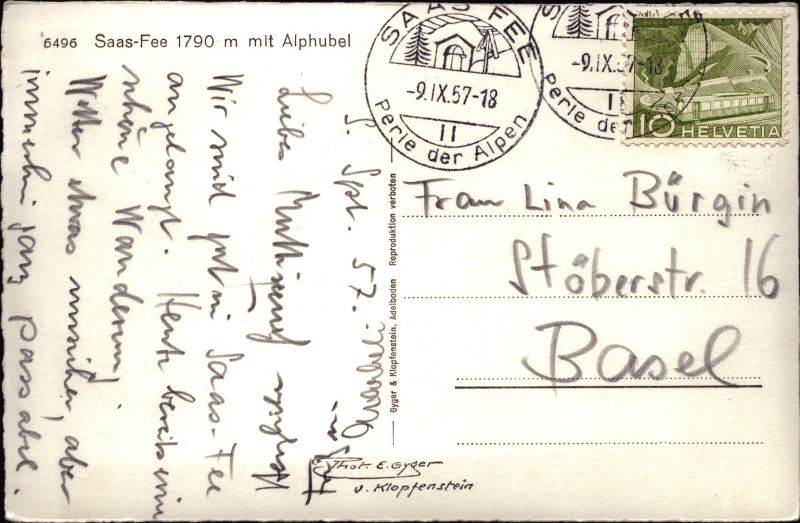 6496 Saas-Fee 1790 m mit Alphubel
SAAS-FEE
-9.IX.57-18
II
Perle der Alpen
SAAS-FEE
-9.IX.57-18
II
Perle der Alpen
10 HELVETIA
Frau Lina Bürgin
Stöberstr. 16
Basel
Gyger & Klopfenstein, Adelboden Reproduktion verboten
Phot. E. Gyger
u. Klopfenstein
9. Spt. 57.
Liebes
Wir sind gut in Saas-Fee
angelangt. Heute bereits eine
schöne Wanderung.
Wetter etwas unsicher, aber
immerhin ganz passabel.